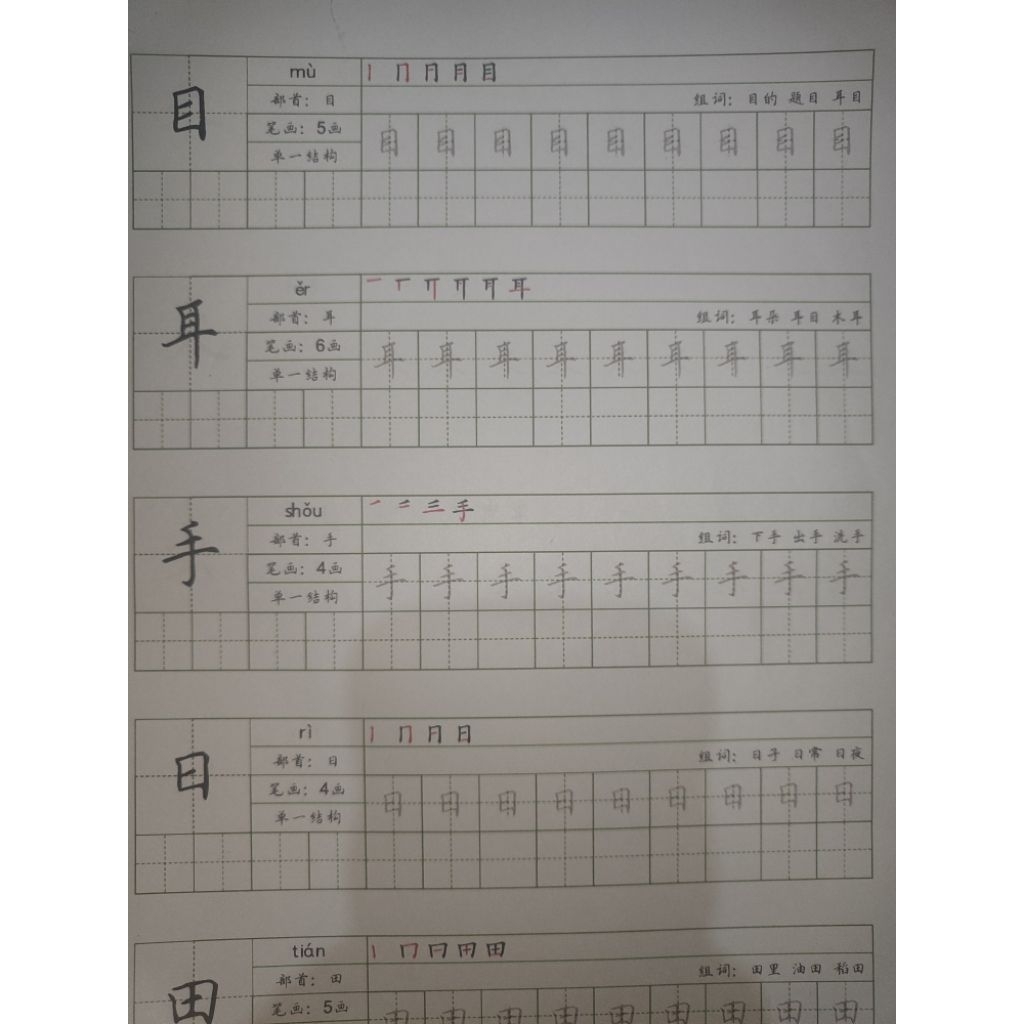 目 mù 丨 冂 月 月 目
部首：目 组词：目的 题目 耳目
笔画：5画 目 目 目 目 目 目 目 目 目
单一结构
耳 ěr 一 丅 丌 耳
部首：耳 组词：耳朵 耳目 木耳
笔画：6画 耳 耳 耳 耳 耳 耳 耳 耳 耳
单一结构
手 shǒu 一 二 三 手
部首：手 组词：下手 出手 洗手
笔画：4画 手 手 手 手 手 手 手 手 手
单一结构
日 rì 丨 冂 日 日
部首：日 组词：日子 日常 日夜
笔画：4画 日 日 日 日 日 日 日 日 日
单一结构
田 tián 丨 冂 日 田 田
部首：田 组词：田里 油田 稻田
笔画：5画 田 田 田 田 田 田 田 田 田